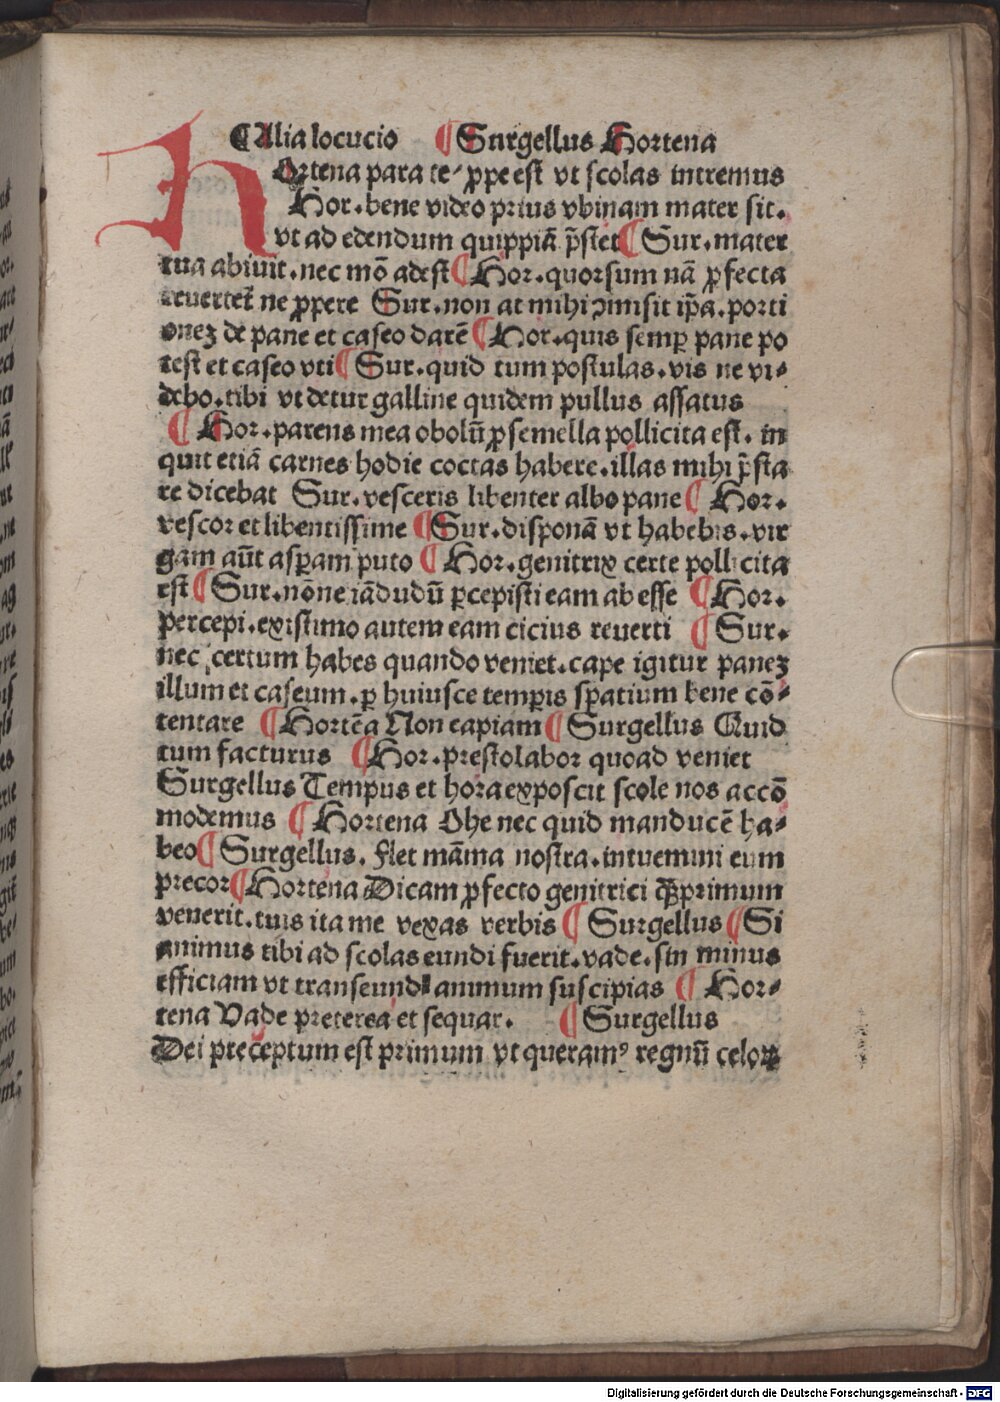 ¶Alia locucio ¶Surgellus Hortena
HOrtena para te/ ꝓpe est vt scolas intremus
Hor. bene video prius vbinam mater sit.
vt ad edendum quippiã p̃stet ¶Sur. mater
tua abiuit. nec mõ adest ¶Hor. quorsum nã ꝓfecta
reuertet̃ ne ꝓpere Sur. non at mihi ꝯmisit ip̃a. porti
onez de pane et caseo darẽ ¶Hor. quis semꝑ pane po
test et caseo vti ¶Sur. quid tum postulas. vis ne vi⸗
debo. tibi vt detur galline quidem pullus assatus
¶Hor. parens mea obolũ ꝓ semella pollicita est. in
quit etiã carnes hodie coctas habere. illas mihi p̃sta
re dicebat Sur. vesceris libenter albo pane ¶Hor.
vescor et libentissime ¶Sur. disponã vt habebis. vir
gam aũt asꝑam puto ¶Hor. genitrix certe pollicita
est ¶Sur. nõne iãdudũ ꝑcepisti eam ab esse ¶Hor.
percepi. existimo autem eam cicius reuerti ¶Sur.
nec certum habes quando veniet. cape igitur panez
illum et caseum. ꝑ huiusce temꝑis spatium bene cõ⸗
tentare ¶Hortẽa Non capiam ¶Surgellus Quid
tum facturus ¶Hor. prestolabor quoad veniet
Surgellus Tempus et hora exposcit scole nos accõ
modemus ¶Hortena Ohe nec quid manducẽ ha⸗
beo ¶Surgellus. Flet mãma nostra. intuemini eum
precor ¶Hortena Dicam ꝓfecto genitrici ꝙ̃primum
venerit. tuis ita me vexas verbis ¶Surgellus ¶Si
animus tibi ad scolas eundi fuerit. vade. sin minus
efficiam vt transeundi animum suscipias ¶Hor⸗
tena Vade preterea et sequar. ¶Surgellus
Dei preceptum est primum vt queramꝰ regnũ celoꝝ
Digitalisierung gefördert durch die Deutsche Forschungsgemeinschaft - DFG